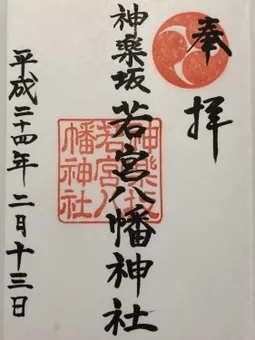 奉拝
神楽坂若宮八幡神社
神楽坂
若宮八
幡神社
平成二十四年二月十三日